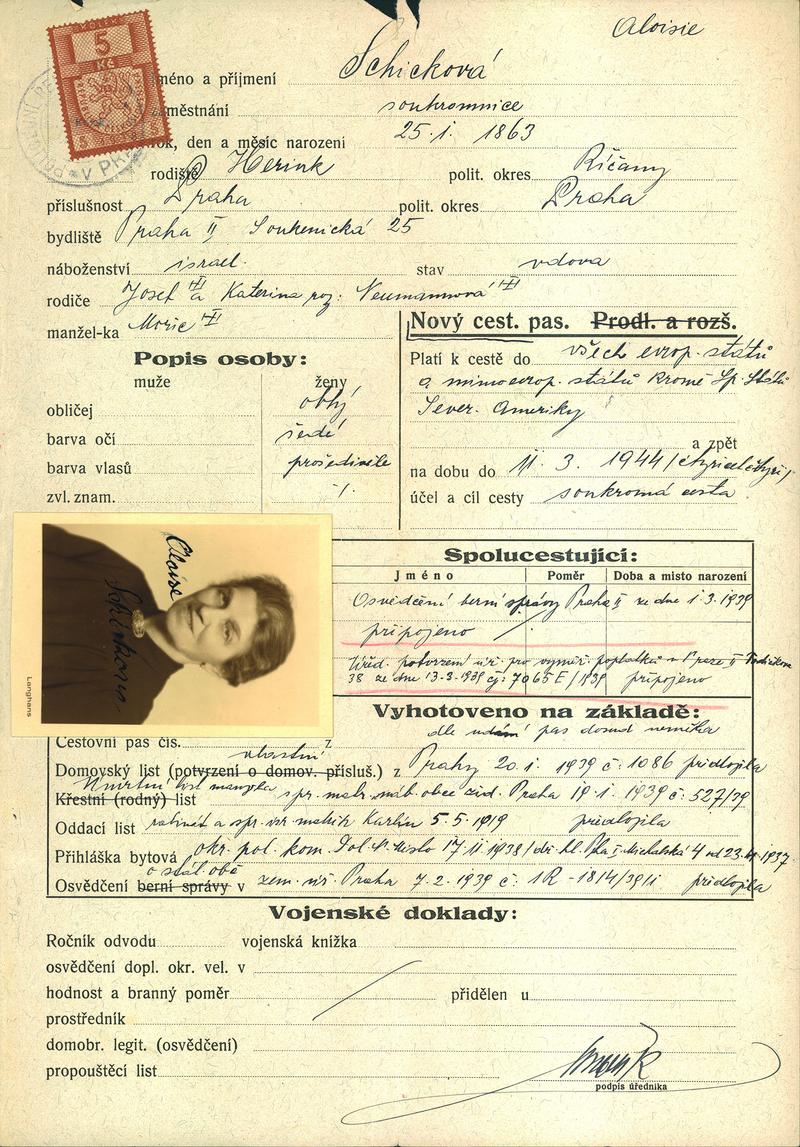 Aloisie
5
Kč
V PRA
Jméno a příjmení Schicková
zaměstnání soukromnice
rok, den a měsíc narození 25. I. 1863
rodiště Herink polit. okres Říčany
příslušnost Praha polit. okres Praha
bydliště Praha II Soukenická 25
náboženství israel. stav vdova
rodiče Josef a Kateřina roz. Neumannová
manžel-ka Moric
Nový cest. pas. Prodl. a rozš.
Platí k cestě do všech evrop. států
a mimoevrop. států kromě Sp. Států
Sever. Ameriky
a zpět
na dobu do 11. 3. 1944
účel a cíl cesty soukromá cesta
Popis osoby:
muže ženy
obličej oblý
barva očí šedé
barva vlasů prošedivělé
zvl. znam. ·/.
Langhans
Spolucestující:
Jméno Poměr Doba a místo narození
Osvědčení berní správy Praha II ze dne 1.3.1939
připojeno
Úřed. potvrzení úř. pro vyměř. poplatků v Praze II
38 ze dne 13-3-1939 čj: 7065 E/1939 připojeno
Vyhotoveno na základě:
dle udání pas dosud neměla
Cestovní pas čís. z
vlastní
Domovský list (potvrzení o domov. přísluš.) z Prahy 20. I. 1939 č: 1086 předložila
Úmrtní list manžela
Křestní (rodný) list spr. matr. náb. obce žid. Praha 19. I. 1939 č: 527/39
Oddací list rabinát a spr. isr. matrik Karlín 5.5.1919 předložila
Přihláška bytová okr. pol. kom. 17 II 1938 Michalská 4 od 23. 1937
o stát. obč.
Osvědčení berní správy v zem. úř. Praha 7.2.1939 č: 1R - 1814/39/1 předložila
Vojenské doklady:
Ročník odvodu vojenská knížka
osvědčení dopl. okr. vel. v
hodnost a branný poměr přidělen u
prostředník
domobr. legit. (osvědčení)
propouštěcí list
podpis úředníka